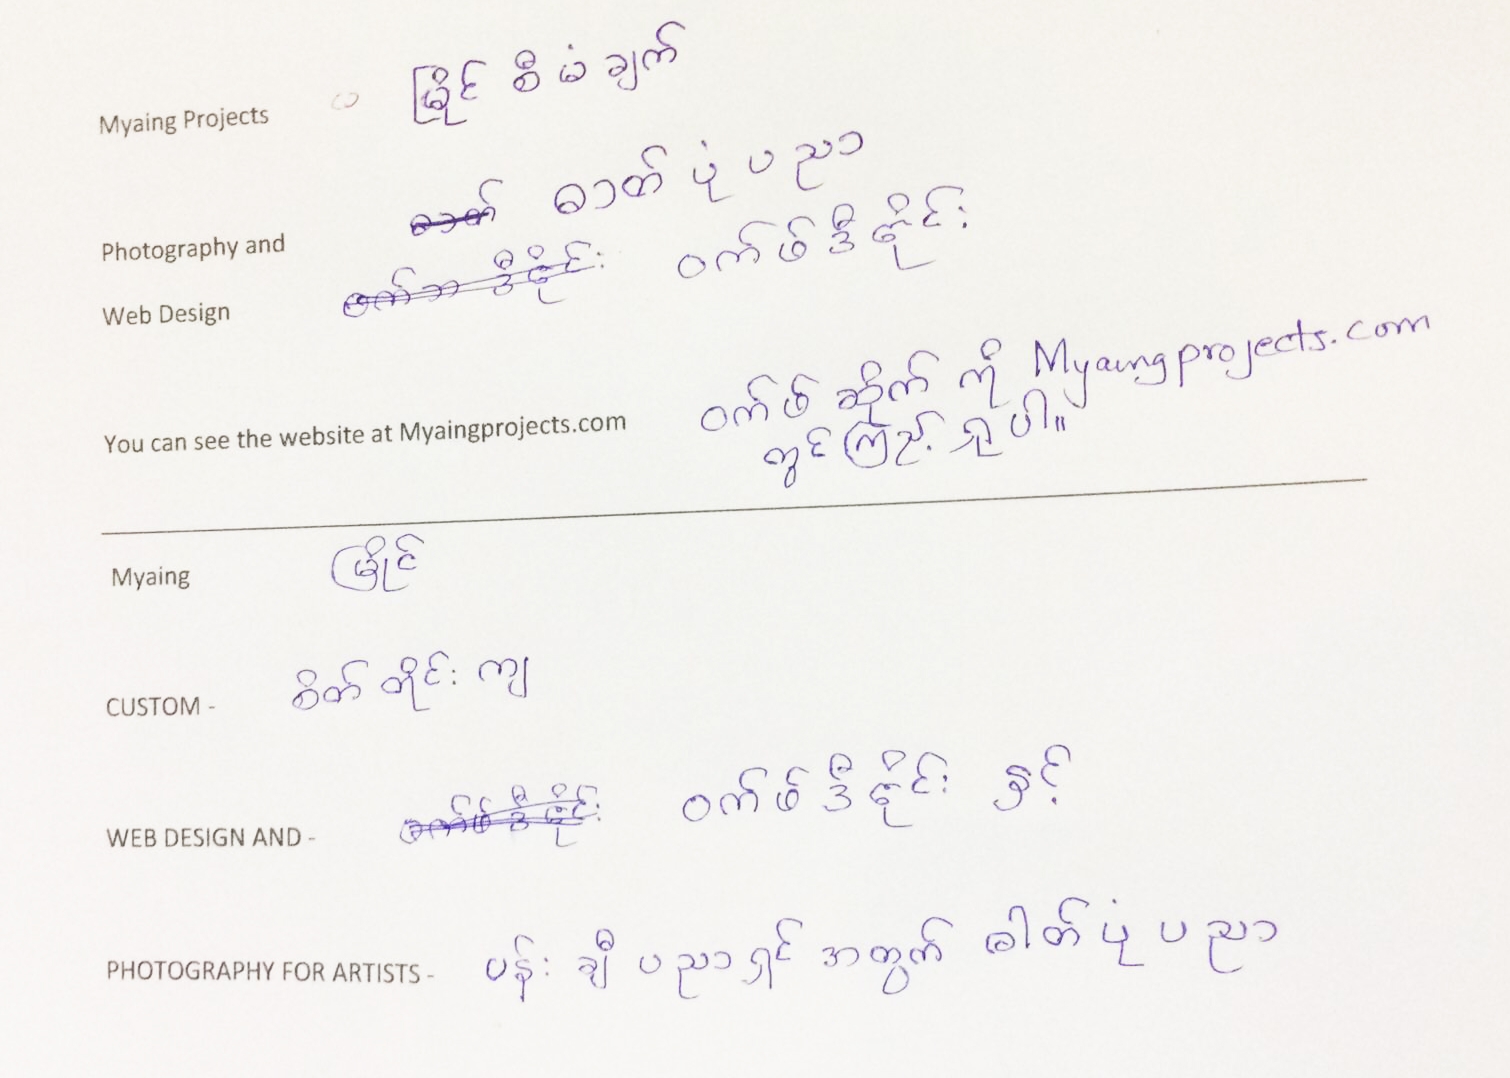 Myaing Projects မြိုင် စီ မံ ချက်
ဓာတ် ပုံ ပ ညာ
Photography and
Web Design ဝက် ဖ် ဒီ ဇိုင်း
ဝက် ဖ် ဆိုက် ကို Myaingprojects.com
You can see the website at Myaingprojects.com
တွင် ကြည့် ရှု ပါ။
Myaing မြိုင်
CUSTOM - စိတ် တိုင်း ကျ
WEB DESIGN AND - ဝက် ဖ် ဒီ ဇိုင်း နှင့်
PHOTOGRAPHY FOR ARTISTS - ပန်း ချီ ပ ညာ ရှင် အတွက် ဓါတ် ပုံ ပ ညာ